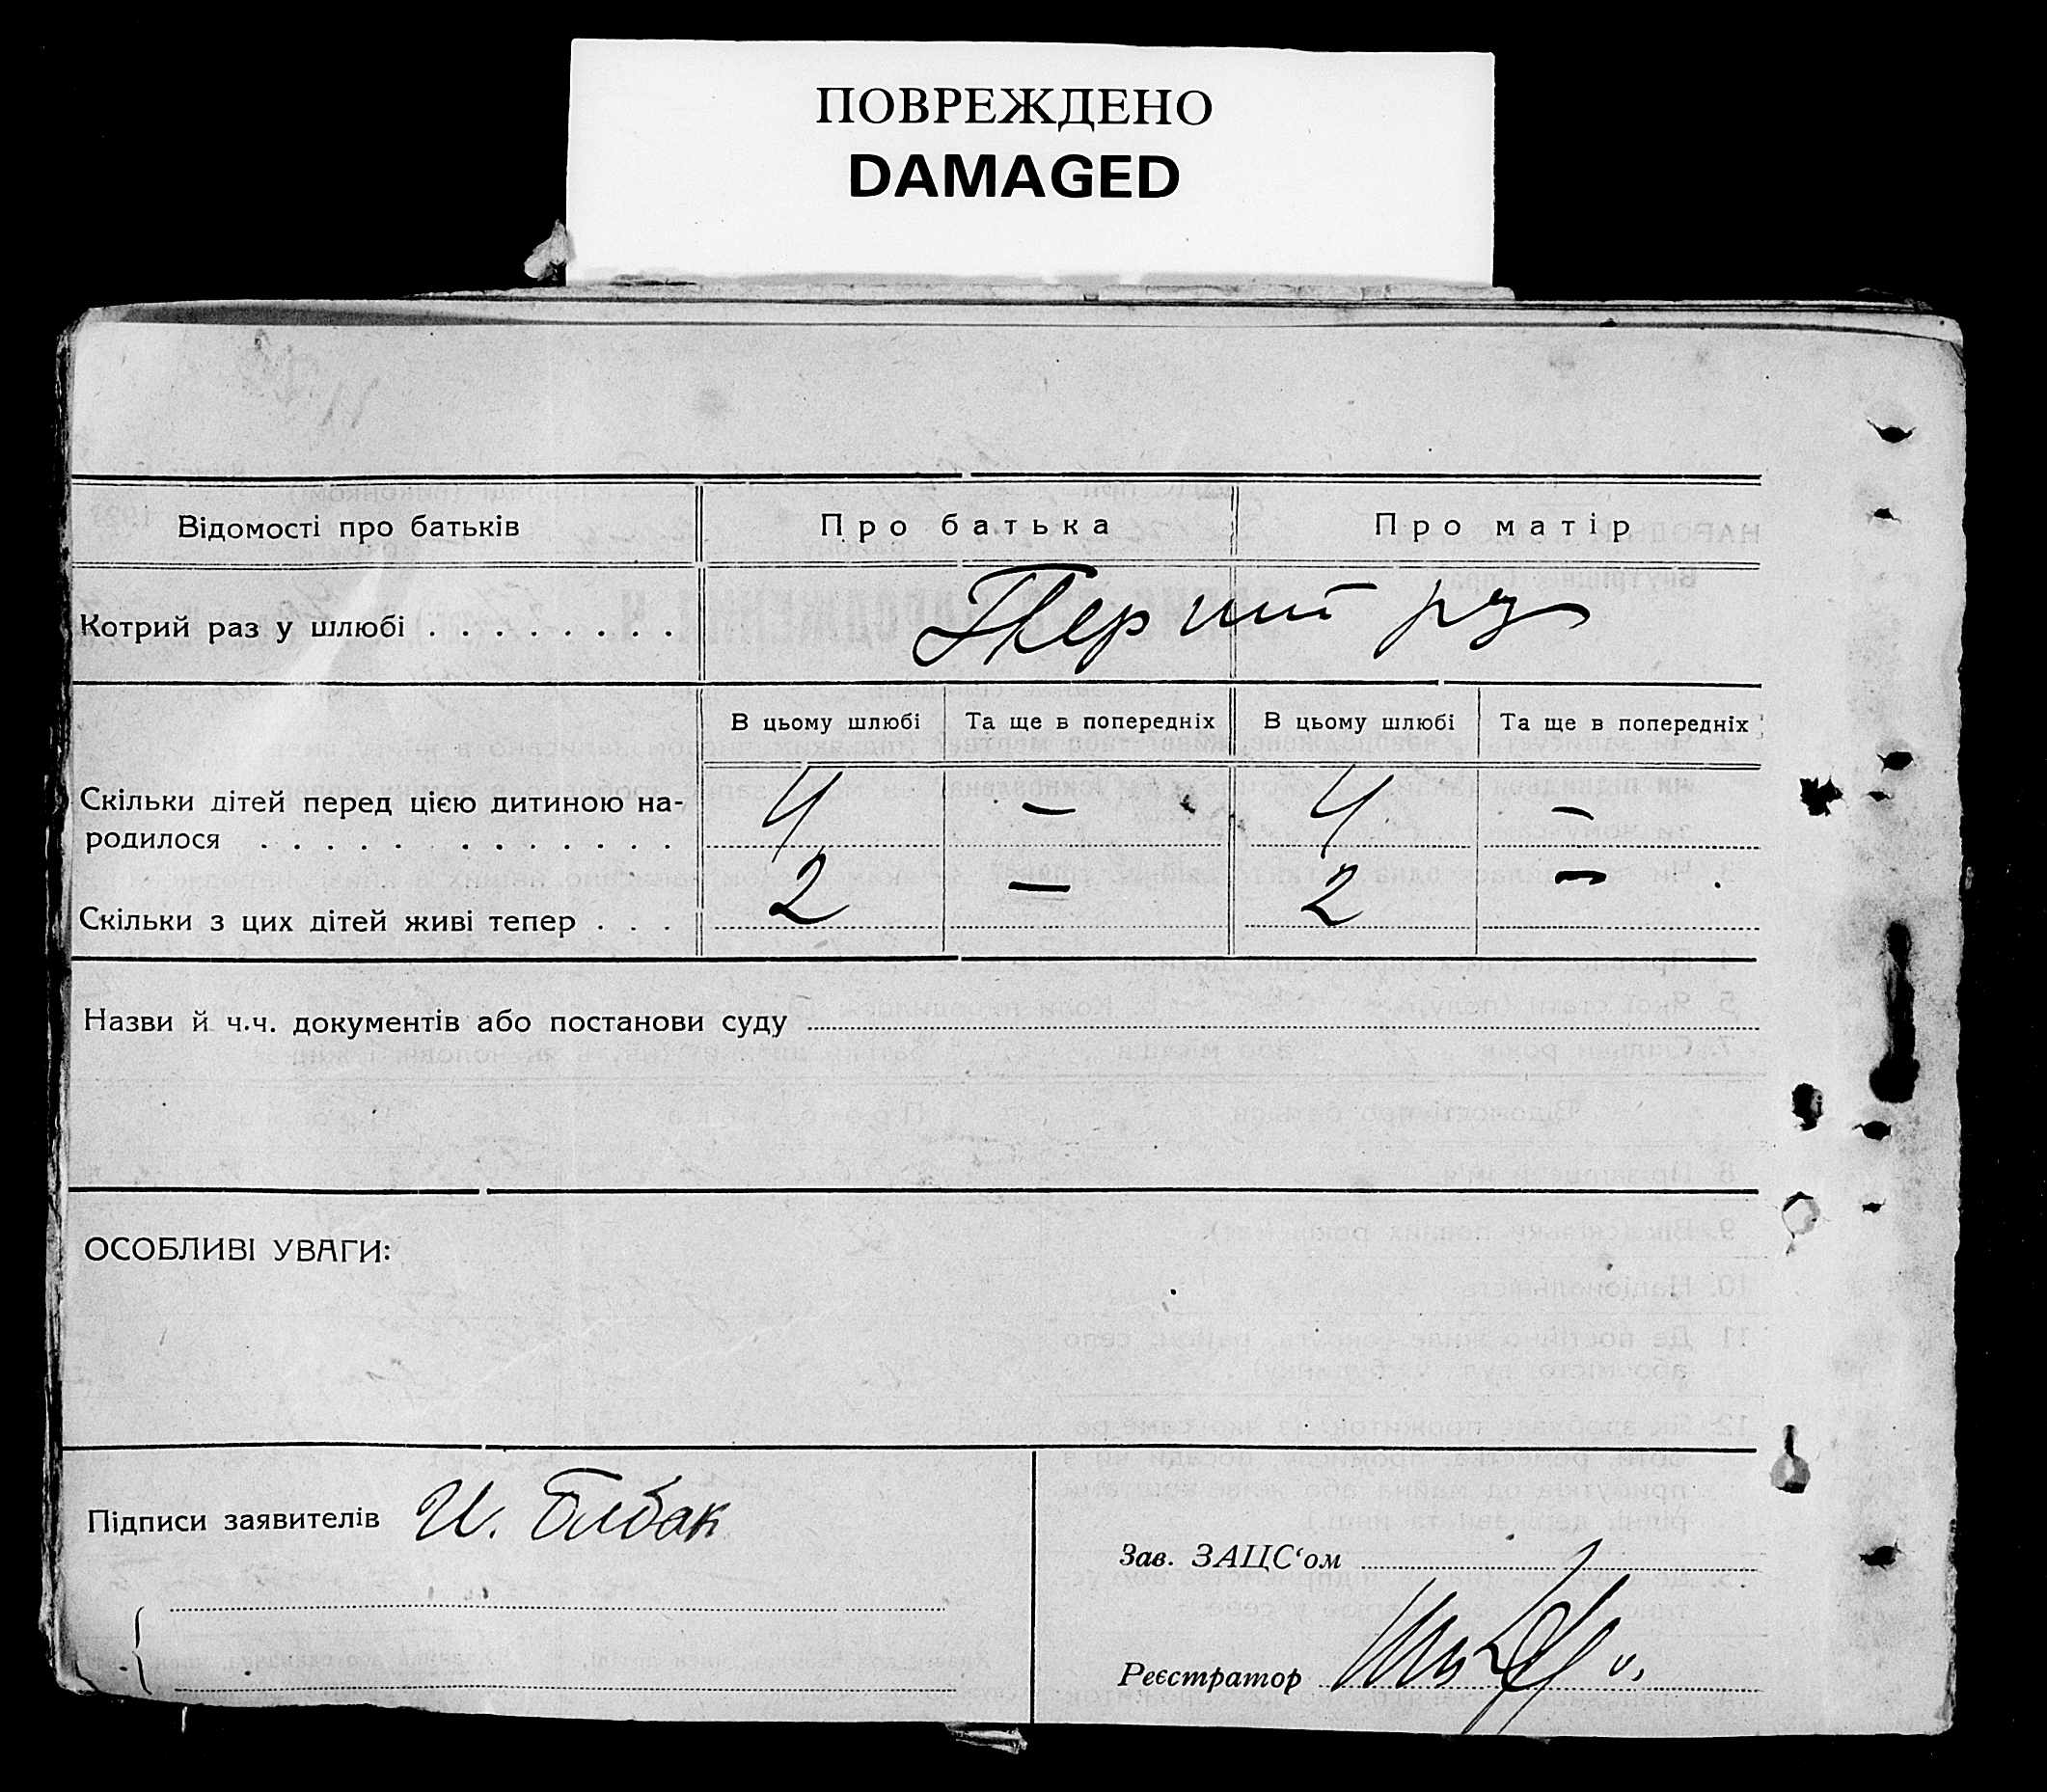 ПОВРЕЖДЕНО
DAMAGED
Відомості про батьків
Про батька
Про матір
Котрий раз у шлюбі . . . . . . . .
Перший раз
В цьому шлюбі
Та ще в попередніх
В цьому шлюбі
Та ще в попередніх
Скільки дітей перед цією дитиною на-
родилося . . . . . . . . . . . .
4 — 4 —
Скільки з цих дітей живі тепер . . .
2 — 2 —
Назви й ч.ч. документів або постанови суду
ОСОБЛИВІ УВАГИ:
Підписи заявителів И.
Зав. ЗАЦС‘ом
Реєстратор